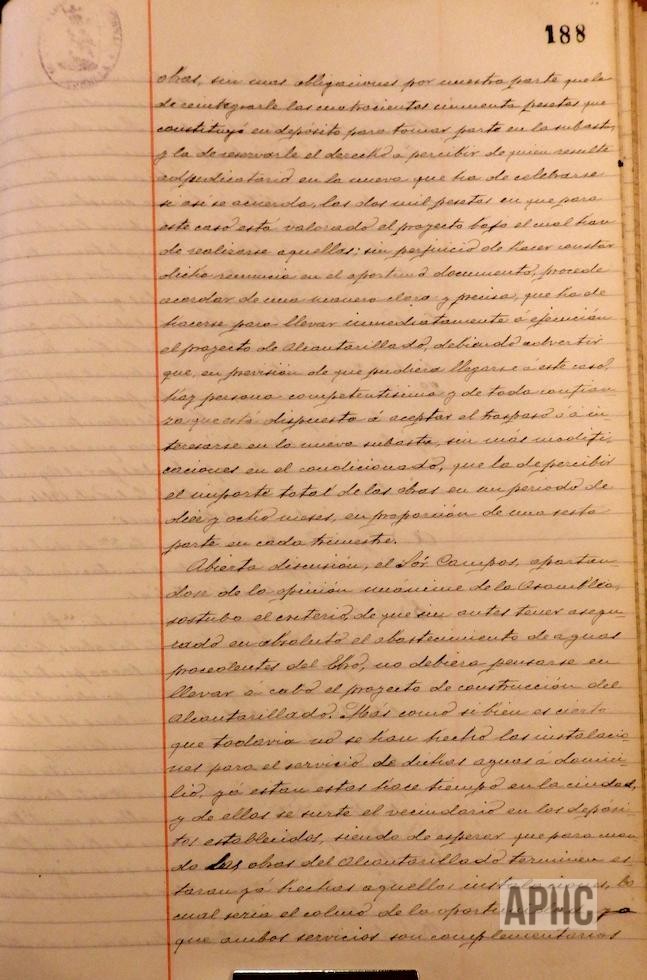 188
obras, sin mas obligaciones por nuestra parte que la
de reintegrarle las cuatrocientas cincuenta pesetas que
constituyó en depósito para tomar parte en la subasta,
y la de reservarle el derecho á percibir de quien resulte
adjudicatario en la nueva que ha de celebrarse
si asi se acuerda, las dos mil pesetas en que para
este caso está valorado el proyecto bajo el cual han
de realizarse aquellas; sin perjuicio de hacer constar
dicha renuncia en el oportuno documento, procede
acordar de una manera clara y precisa, que ha de
hacerse para llevar inmediatamente á ejecución
el proyecto de Alcantarillado, debiendo advertir
que, en previsión de que pudiera llegarse á este caso,
hay persona competentisima y de toda confian-
za que está dispuesta á aceptar el traspaso ó á in-
teresarse en la nueva subasta, sin más modifi-
caciones en el condicionado, que la de percibir
el importe total de las obras en un periodo de
diez y ocho meses, en proporción de una sexta
parte en cada trimestre.
Abierta discusión, el Sór Campos, apartan-
dose de la opinión unánime de la Asamblea,
sostubo el criterio, de que sin antes tener asegu-
rado en absoluto el abastecimiento de aguas
procedentes del Ebro, no debiera pensarse en
llevar á cabo el proyecto de construcción del
Alcantarillado. Más como si bien es cierto
que todavia no se han hecho las instalacio-
nes para el servicio de dichas aguas á domici-
lio, yá estan estas hace tiempo en la ciudad,
y de ellas se surte el vecindario en los depósi-
tos establecidos, siendo de esperar que para cuan-
do las obras del Alcantarillado terminen es-
taran yá hechas aquellas instalaciones, lo
cual seria el colmo de la oportunidad, ya
que ambos servicios son complementarios
APHC